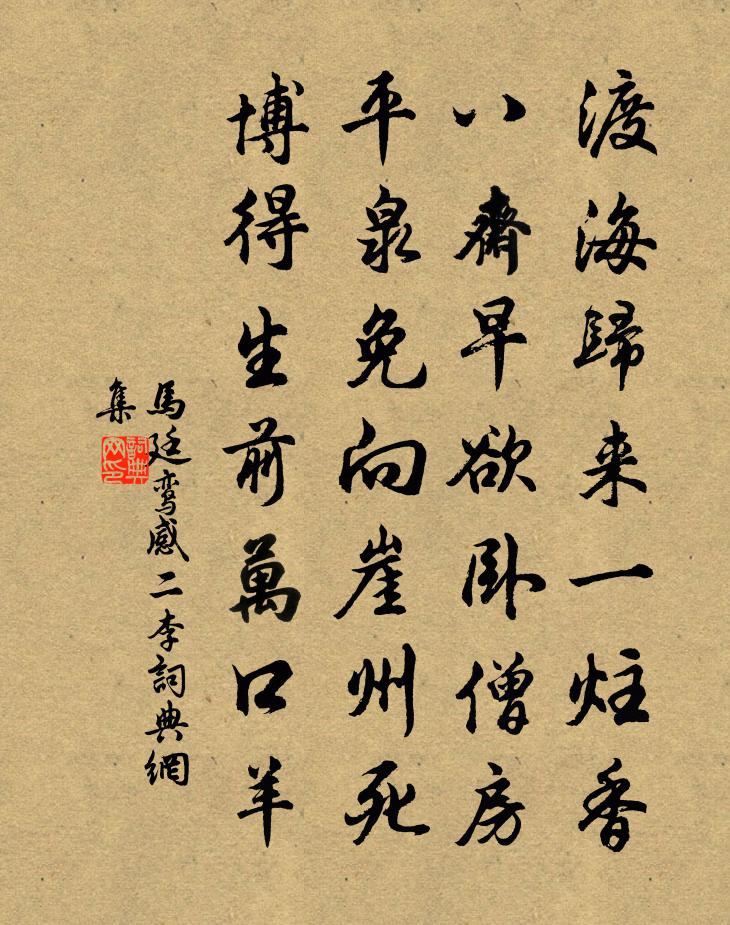 渡海歸来一炷香
八齋早欲卧僧房
平泉免向崖州死
博得生前萬口羊
馬廷鸾感二李詞典網
集
詞典网印